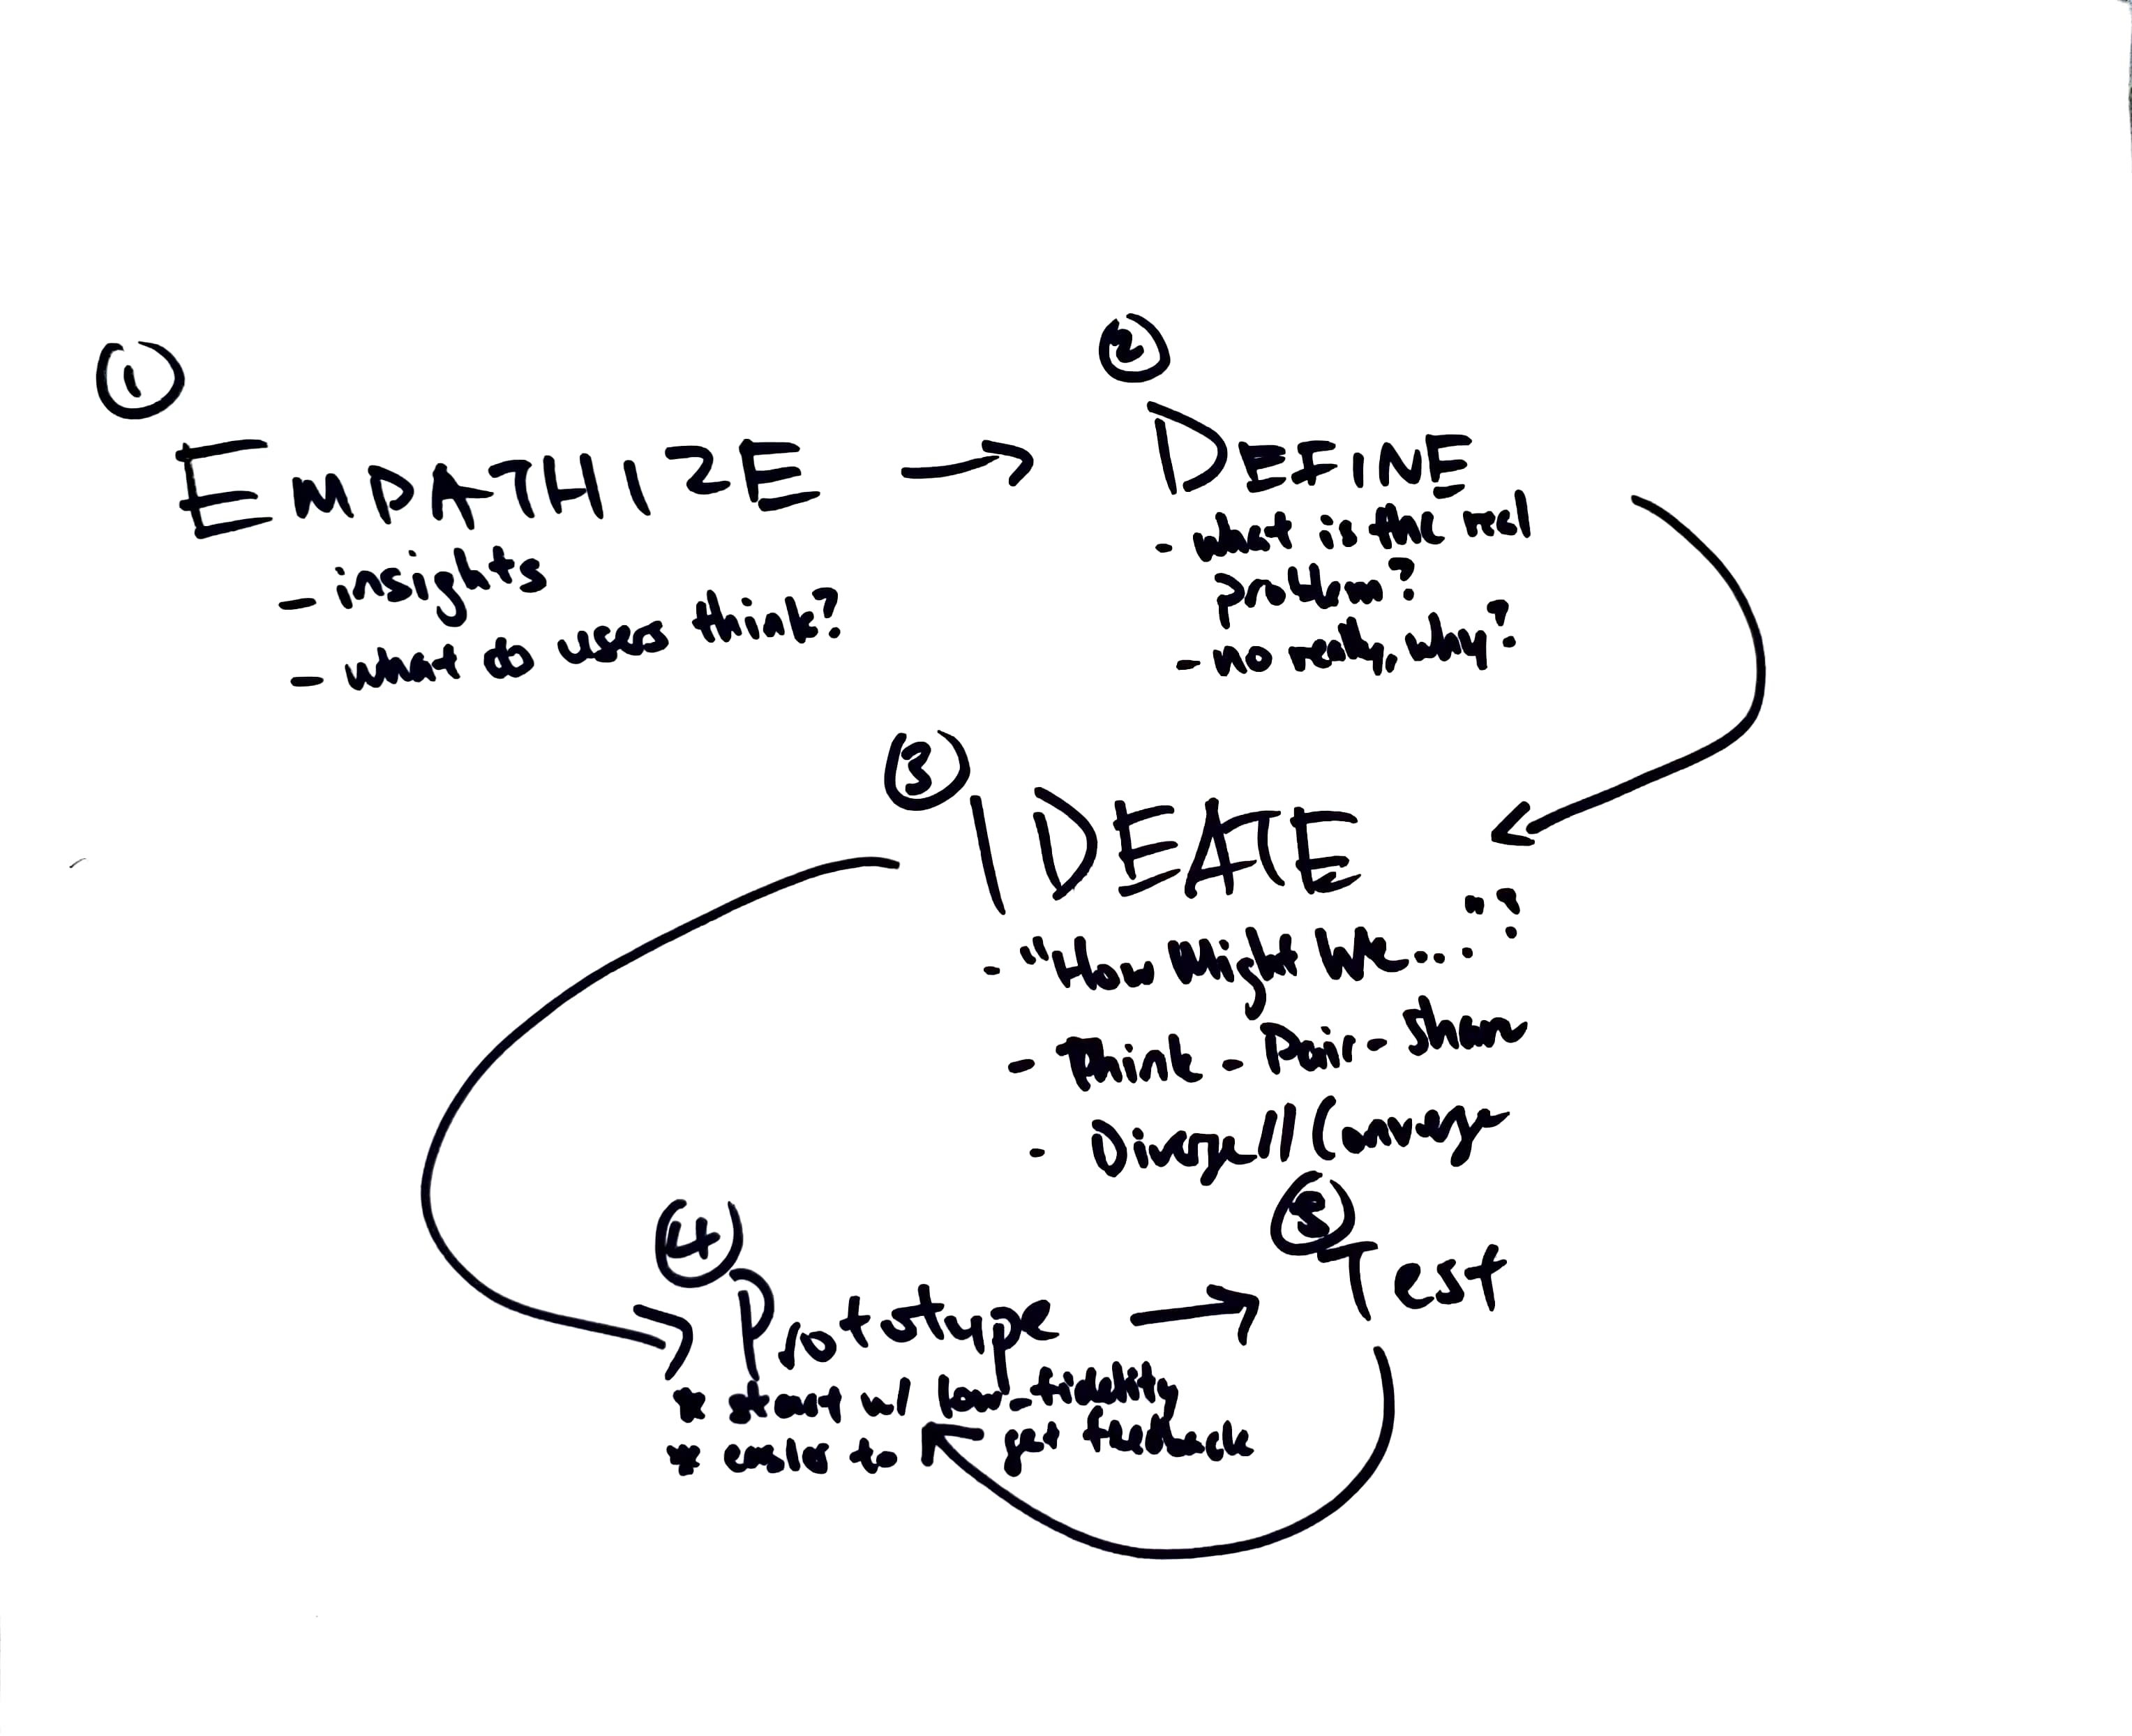 ①
EMPATHIZE
- insights
- what do users think?
②
DEFINE
- what is the real
problem?
- no really, why?
③
IDEATE
- "How Might We..."?
- Think - Pair - Share
- Diverge // Converge
④
Prototype
* start w/ low-fidelity
* easier to get feedback
⑤
Test